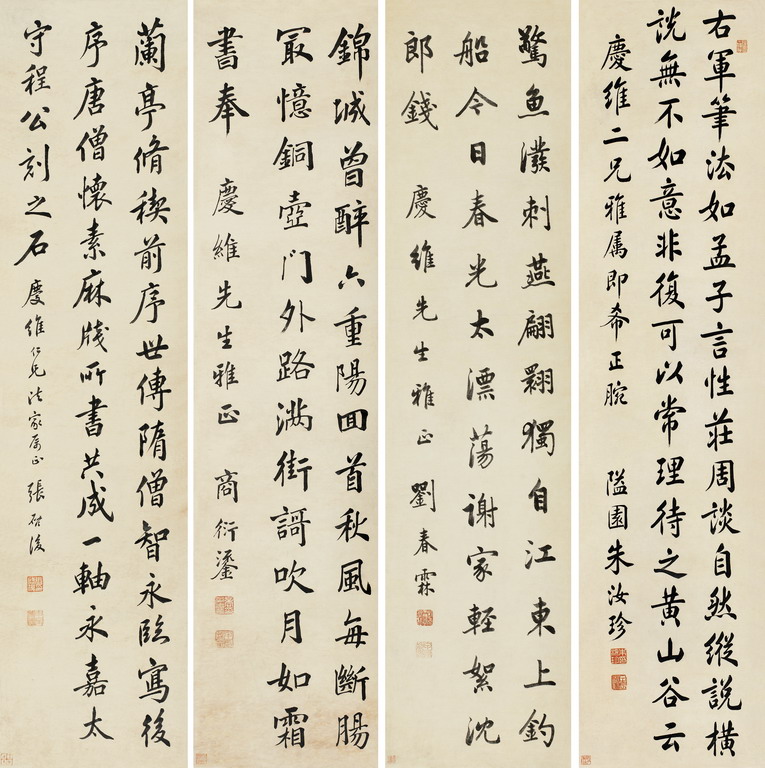 右軍筆法如孟子言性莊周談自然縱說橫
說無不如意非復可以常理待之黃山谷云
慶維二兄雅屬即希正腕
隘園朱汝珍
驚魚潑刺燕翩翾獨自江東上釣
船今日春光太漂蕩謝家輕絮沈
郎錢
慶維先生雅正
劉春霖
錦城曾醉六重陽回首秋風每斷腸
最憶銅壺門外路滿街謌吹月如霜
書奉
慶維先生雅正
商衍鎏
蘭亭脩稧前序世傳隋僧智永臨寫後
序唐僧懷素麻牋所書共成一軸永嘉太
守程公刻之石
慶維仁兄法家屬正
張啟後